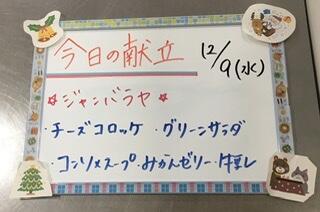 今日の献立 12/9(水)
☆ジャンバラヤ☆
・チーズコロッケ ・グリーンサラダ
・コンソメスープ・みかんゼリー・牛乳